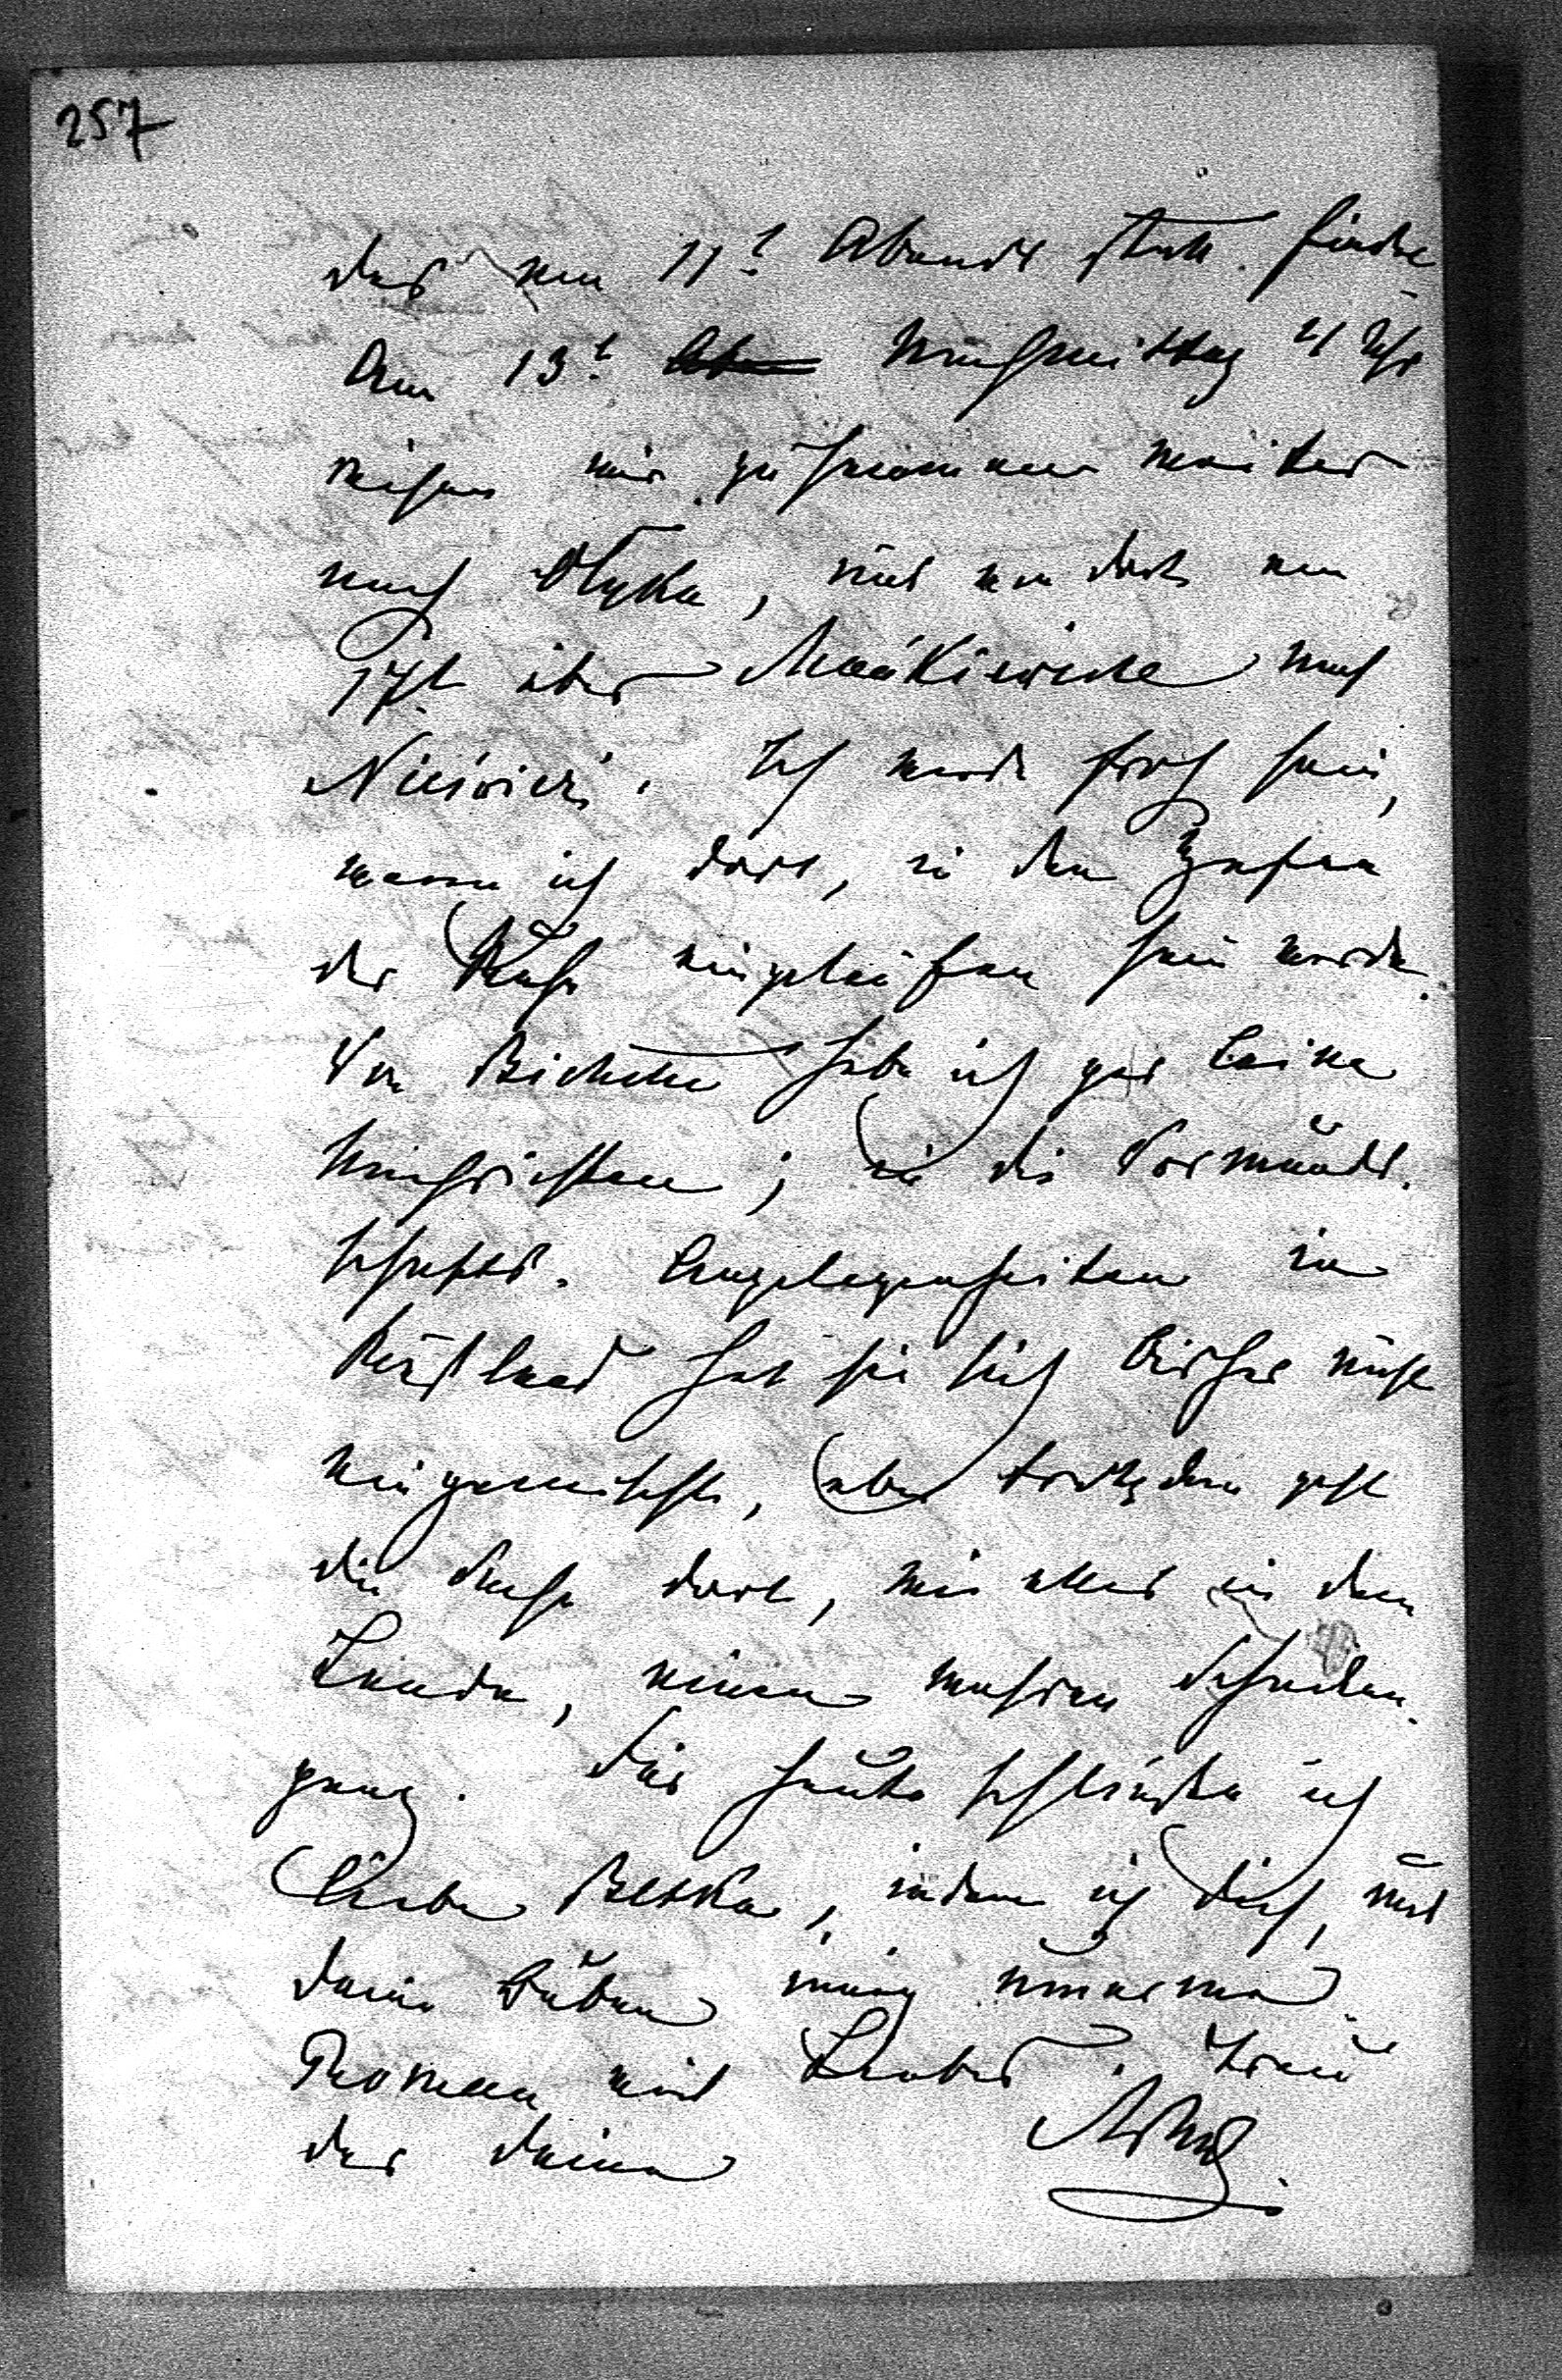 257
das am 11t Abends statt finde
Am 13t Nachmittag 4 Uhr
reisen wir zusammen weiter
nach Ołyka, und von dort am
17t über Maćkiewicze nach
Nieśwież. Ich werde froh sein,
wenn ich dort, in den Hafen
der Ruhe eingelaufen sein werde.
Von Bichette habe ich gar keine
Nachrichten; in die Vormund-
schafts. Angelegenheiten in
Rußland hat sie sich bisher nicht
eingemischt, aber trotzdem geht
die Sache dort, wie alles in dem
Lande, einen wahren Schnecken-
gang. Für heute schließe ich
liebe Betka, indem ich Dich, und
Deine Buben innig umarme
Roman mit Loulou. Treu
der Deine